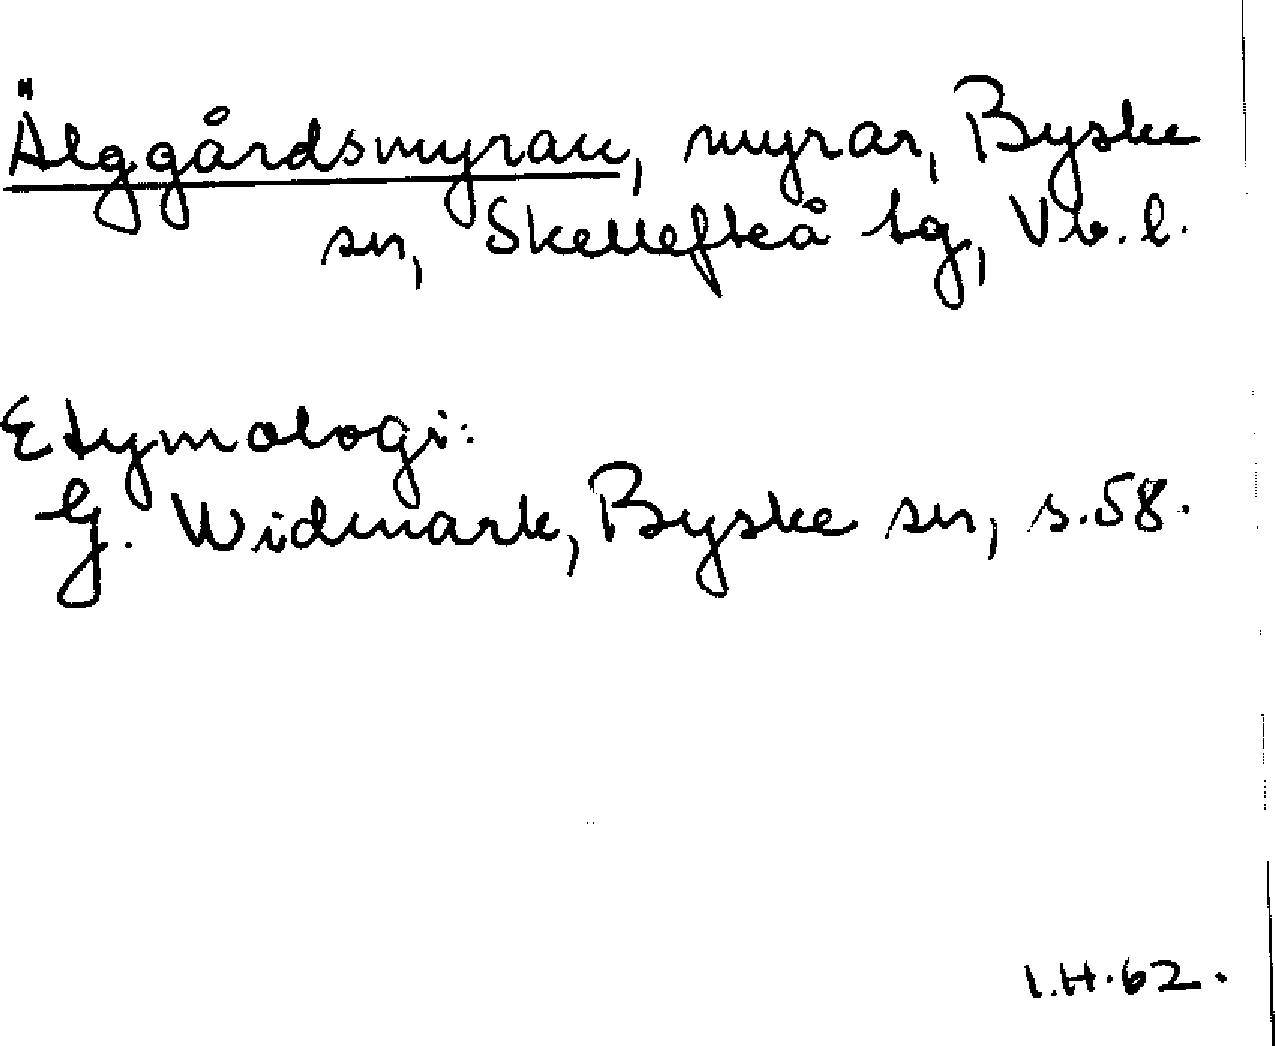 Älggårdsmyran, myrar, Byske
sn, Skellefteå tg, Vb. l.
Etymologi:
G. Widmark, Byske sn, s. 58.
I.H. 62.